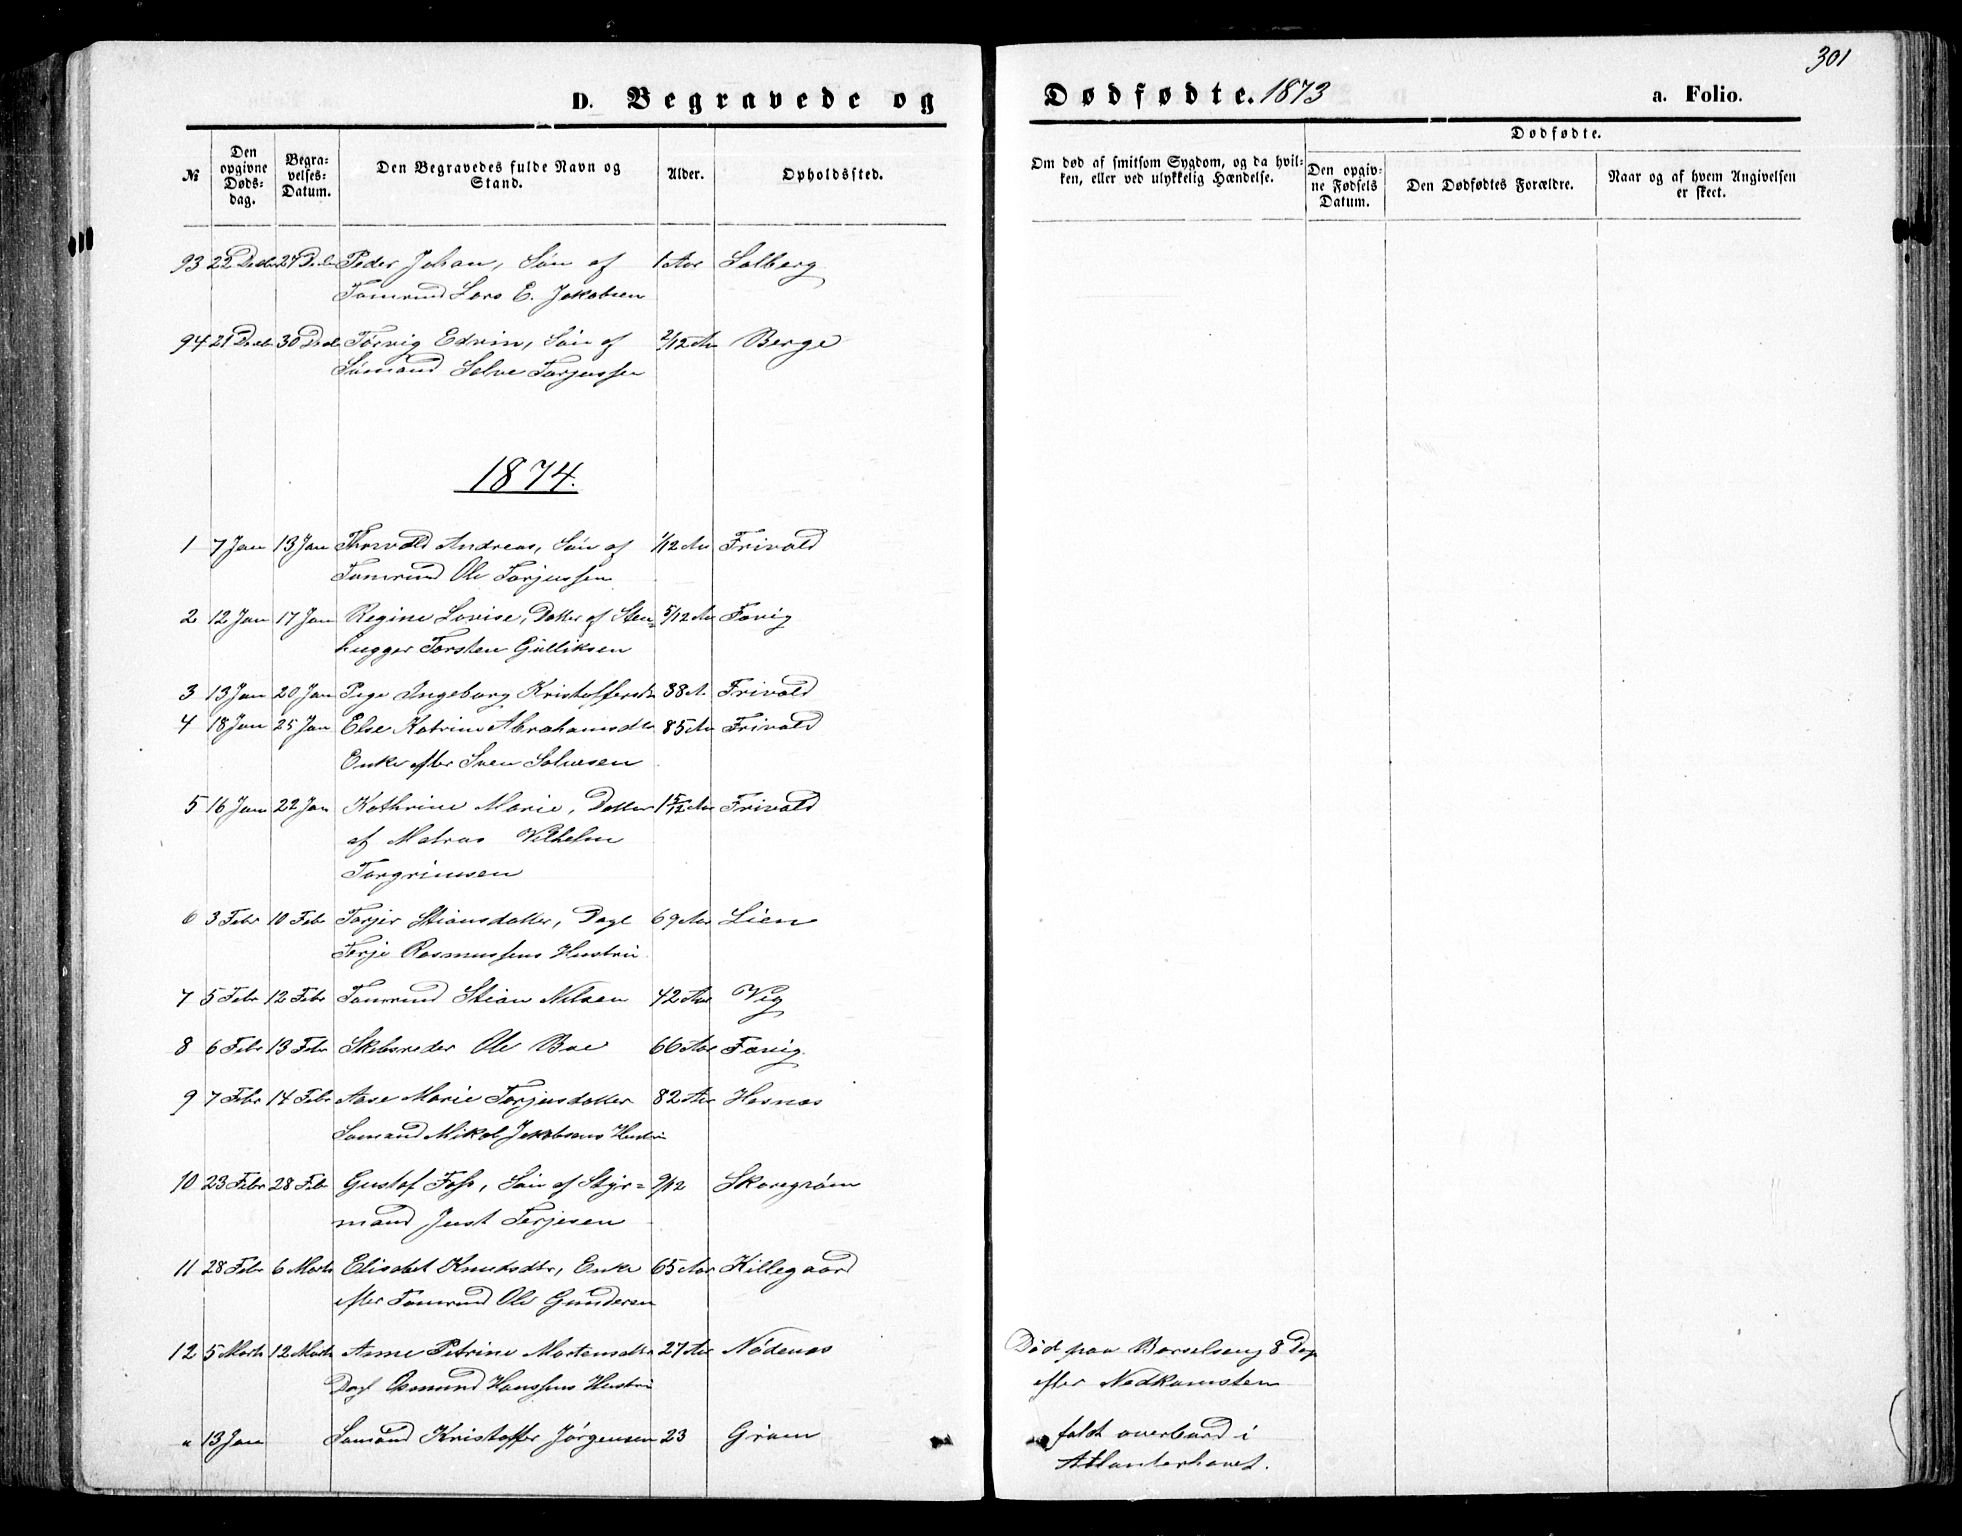 301
D. Begravede og Dødfødte. 1873 a. Folio.
№ Den opgivne Døds-dag. Begra-velses-Datum. Den Begravedes fulde Navn og Stand. Alder. Opholdssted. Om død af smitsom Sygdom, og da hvil-ken, eller ved ulykkelig Hændelse. Dødfødte. Den opgiv-ne Fødsels Datum. Den Dødfødtes Forældre. Naar og af hvem Angivelsen er skeet.
93 22 Decbr 27 Decbr Peder Johan, Søn af 1 Aar Solberg
Tømrmd Lars E. Jakobsen
94 21 Decbr 30 Decbr Torvig Edvin, Søn af 2/12 Aar Berge
Sømand Salve Torjussen
1874.
1 7 Jan 13 Jan Thorvald Andreas, Søn af 1/12 Aar Frivold
Tømrmd Ole Torjussen
2 12 Jan 17 Jan Regine Lovise, Datter af Sten- 5/12 Aar Fevig
hugger Torsten Gulliksen
3 13 Jan 20 Jan Pige Ingeborg Kristoffersdtr 38 A. Frivold
4 18 Jan 25 Jan Else Katrine Abrahamsdtr 85 Aar Frivold
Enke efter Sven Salvesen
5 16 Jan 22 Jan Kathrine Marie, Datter 1 5/12 Aar Frivold
af Matros Vilhelm
Torgrimsen
6 3 Febr 10 Febr Torjer Stiansdatter, Dagl 69 Aar Lien
Terje Rasmussens Hustru
7 5 Febr 12 Febr Tømrmd Stian Nilsen 42 Aar Vig
8 6 Febr 13 Febr Skibsreder Ole Boe 66 Aar Fevig
9 7 Febr 14 Febr Aase Marie Torjusdatter 82 Aar Hasnes
Sømand Mikal Jakobsens Hustru
10 23 Febr 28 Feb Gustaf Foss, Søn af Styr- 9/12 Skaregrøm
mand Just Terjesen
11 28 Febr 6 Marts Elisabet Knudsdtr, Enke 65 Aar Killegaard
efter Tømrmd Ole Gundersen
12 5 Marts 12 Marts Anne Petrine Mortensdtr 27 Aar Nødenæs Død paa Barselseng 8 Dag
Dagl Osmund Hanssens Hustru efter Nedkomsten
a 13 Jan Sømand Kristoffer Jørgensen 23 Grøm faldt overbord i
Atlanterhavet.